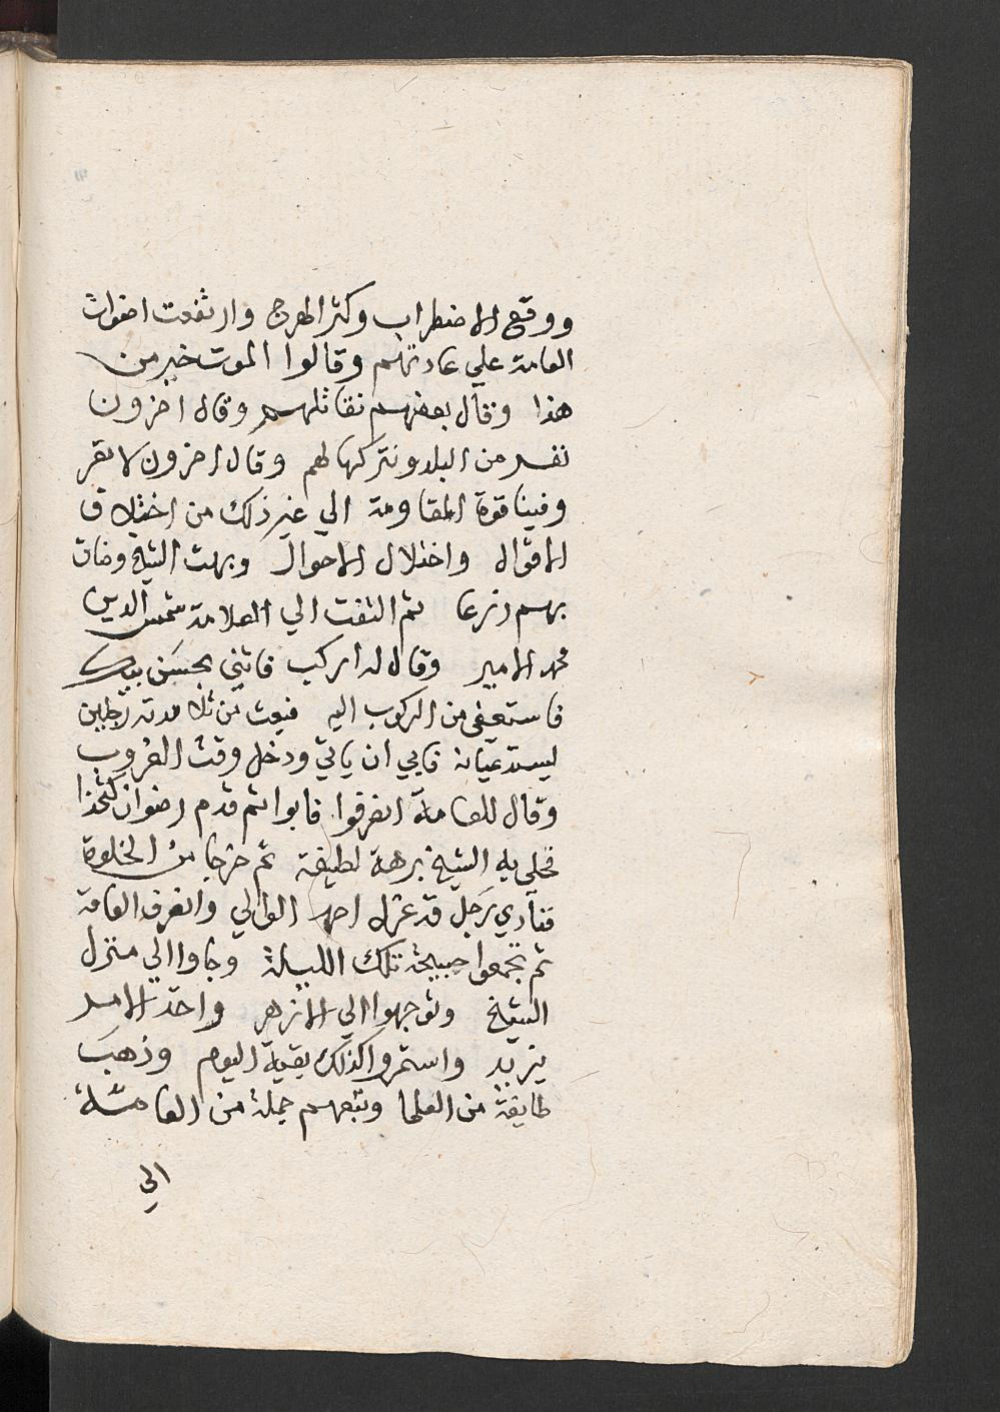 ووقع الاضطراب وكثر الهرج وارتفعت اصوات
العامة علي عادتهم وقالوا الموت خير من
هذا وقال بعضهم نقاتلهم وقال اخرون
نفر من البلد ونتركها لهم وقال اخرون لا نفر
وفينا قوة المقاومة الي غير ذلك من اختلاف
الاقوال واختلال الاحوال وبهت الشيخ وضاق
بهم ذرعا ثم التفت الي العلامة شمس الدين
محمد الامير وقال له اركب فاتني بحسن بيك
فاستعفي من الركوب اليه فبعث من تلامدته رجلين
ليستدعيانه فابي ان ياتي ودخل وقت الغروب
وقال للعامة انصرفوا فابوا ثم قدم رضوان كتخدا
فخلي به الشيخ برهة لطيفة ثم خرجا من الخلوة
فنادي رجل قد عزل احمد الوالي وانصرف العامة
ثم تجمعوا صبيحة تلك الليلة وجاوا الي منزل
الشيخ وتوجهوا الي الازهر واخذ الامر
يزيد واستمروا كذلك بقية اليوم وذهب
طايفة من العلما وتبعهم جملة من العامة
الي